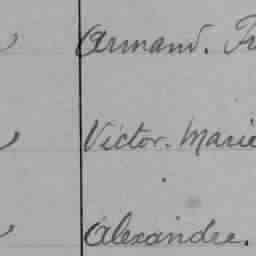 Armand. Fr
Victor. Marie
Alexandre.